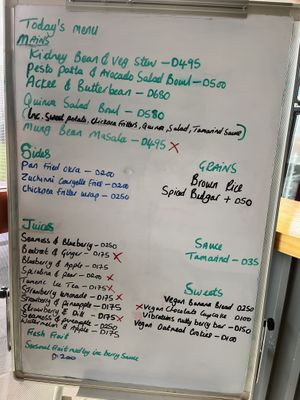 Today's menu
MAINS
Kidney Bean & Veg Stew - D495
Pesto Pasta & Avocado Salad Bowl - D500
Ackee & Butterbean - D680
Quinoa Salad Bowl - D580
(Inc. Sweet potato, Chickpea Fritters, Quinoa, Salad, Tamarind Sauce)
Mung Bean Masala - D495 X
Sides
Pan Fried Okra - D200
Zuchinni Courgette Fries - D200
Chickpea Fritter Wrap - D250
GRAINS
Brown Rice
Spiced Bulgar + D50
Juices
Seamoss & Blueberry - D250
Beetroot & Ginger - D175 X
Blueberry & Apple - D175
Spirulina & Pear - D200 X
Tumeric Ice Tea - D175 X
Strawberry Lemonade - D175 X
Strawberry & Pineapple - D175
Strawberry & Dill - D175 X
Seamoss & Pineapple - D250
Watermelon & Apple - D175
Fresh Fruit
Seasonal Fruit medley inc berry Sauce
D200
Sauce
Tamarind - D35
Sweets
Vegan Banana Bread D250
X Vegan Chocolate Cupcake D100
Vibrations nutty berry bar - D150
Vegan Oatmeal Cookies - D100